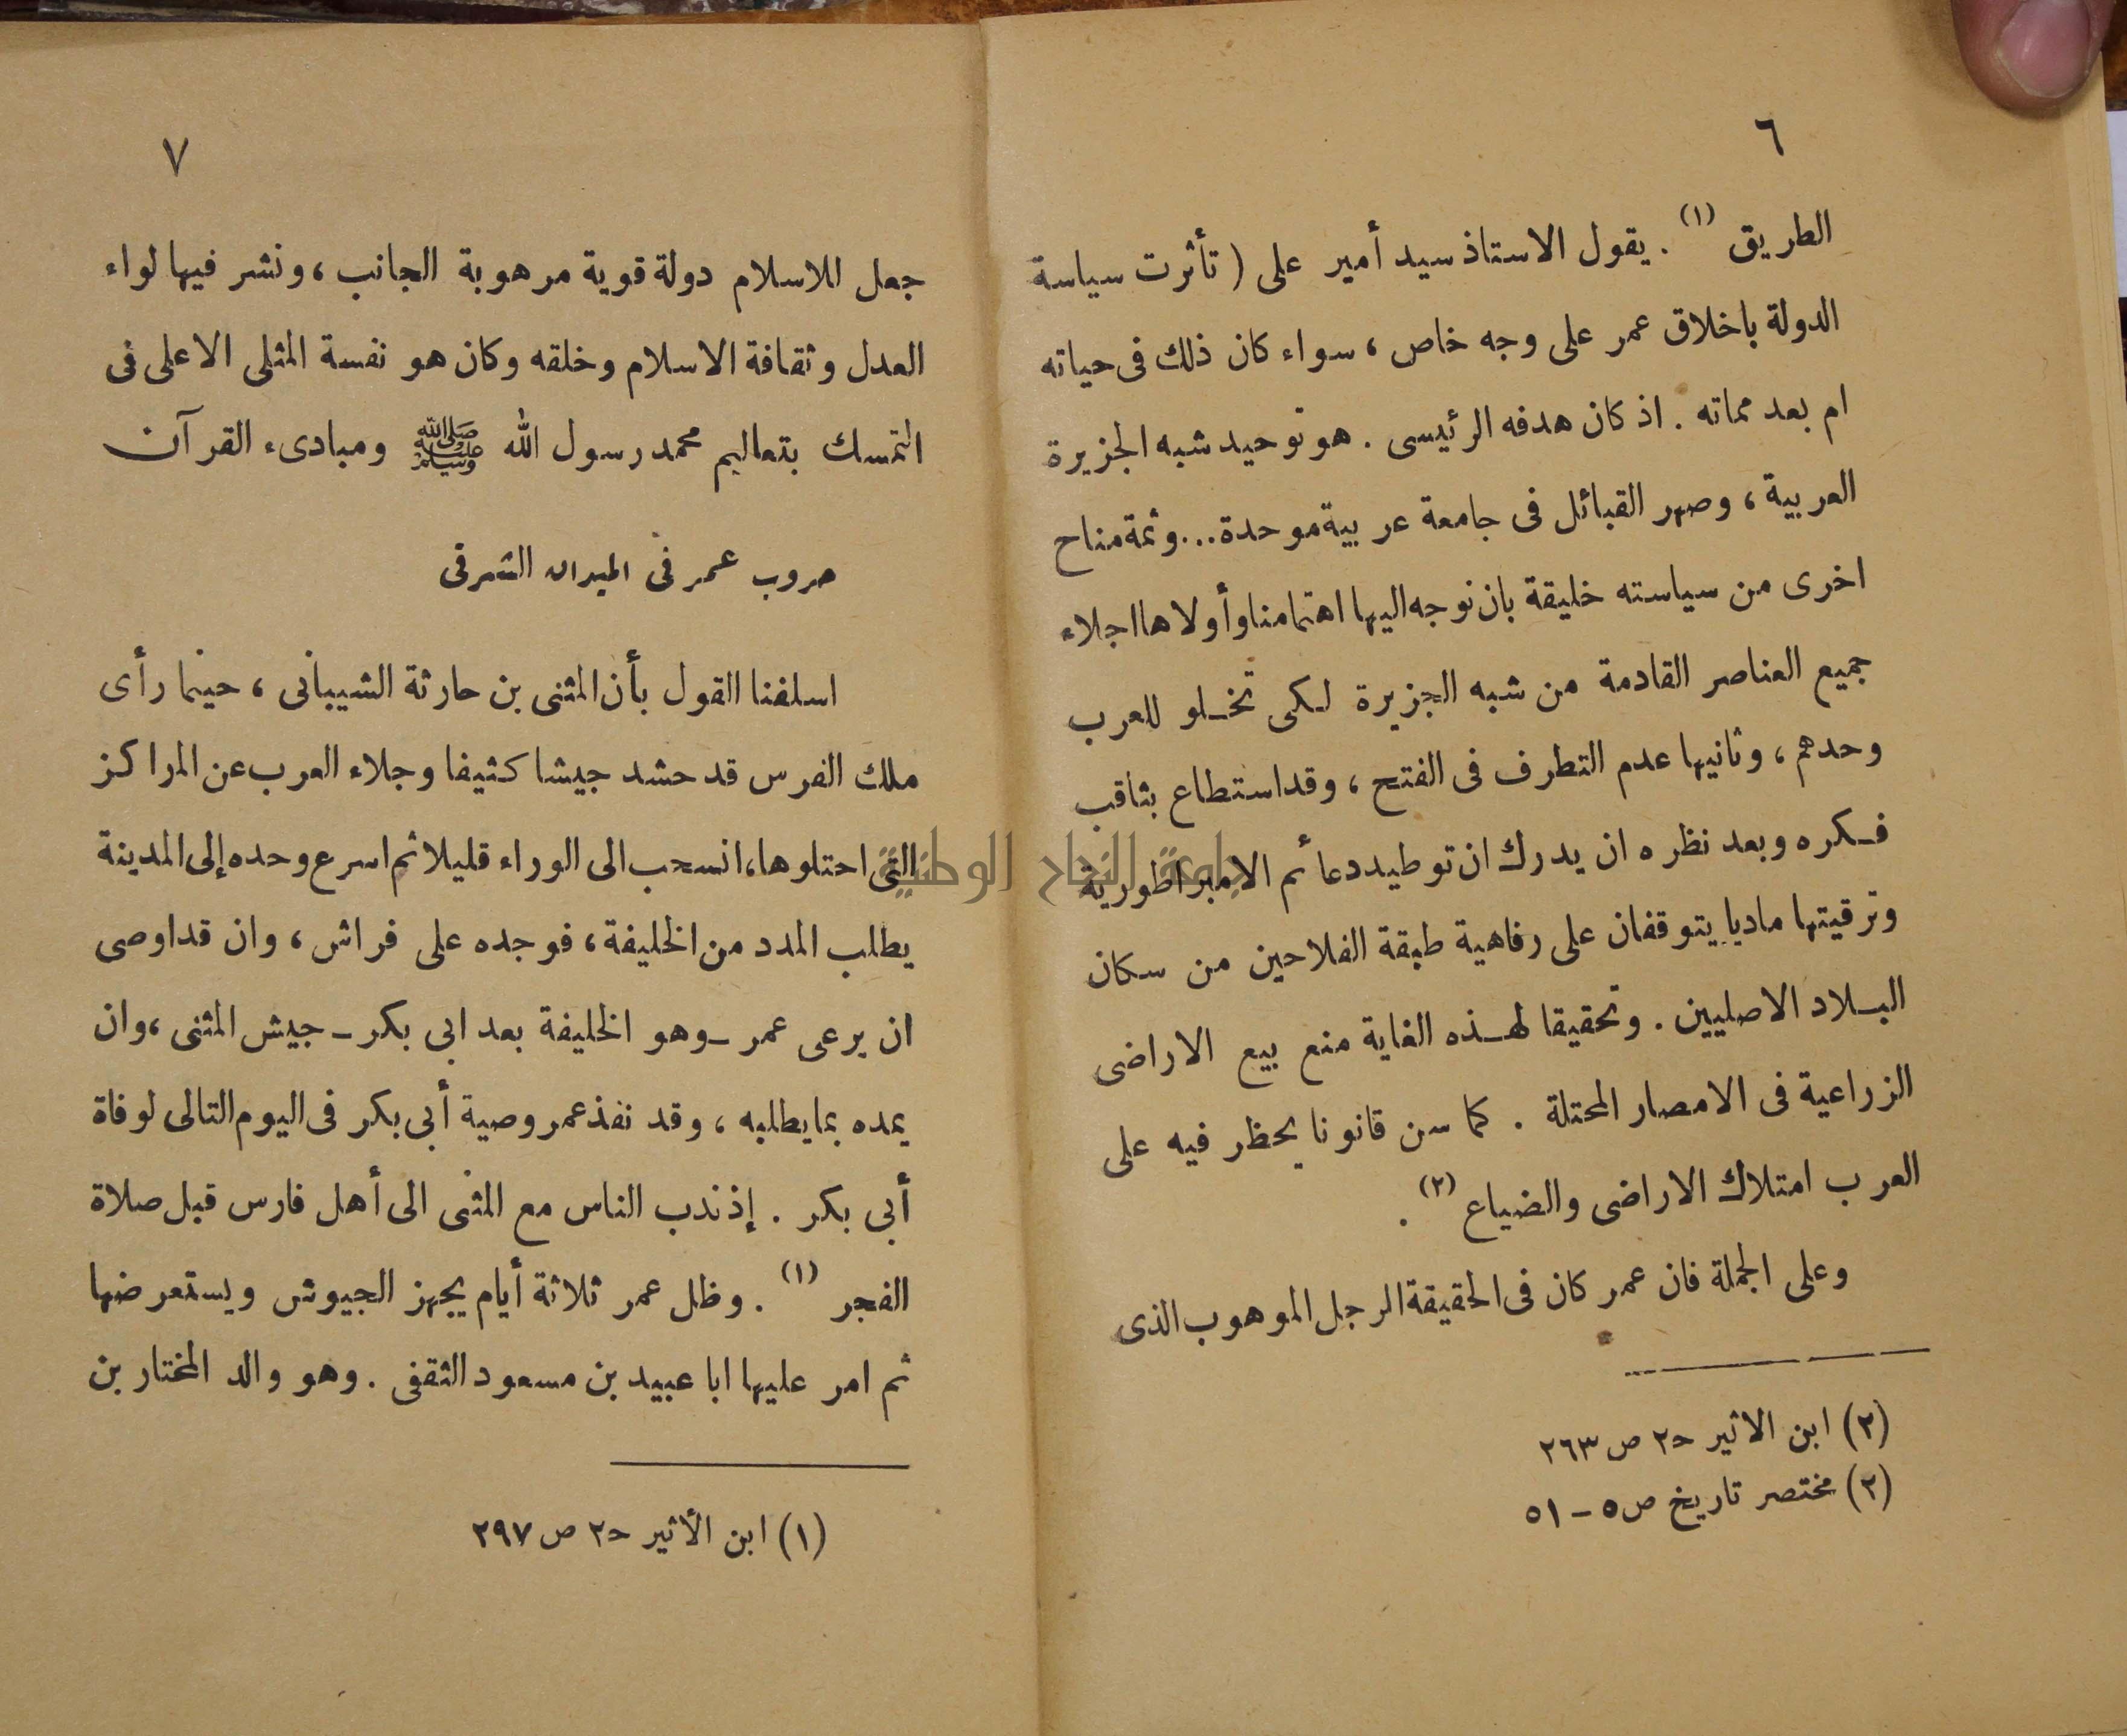 ٦
الطريق (١) . يقول الاستاذ سيد أمير على ( تأثرت سياسة
الدولة باخلاق عمر على وجه خاص ، سواء كان ذلك فى حياته
ام بعد مماته . اذ كان هدفه الرئيسى . هو توحيد شبه الجزيرة
العربية ، وصهر القبائل فى جامعة عربية موحدة ... وثمة مناح
اخرى من سياسته خليقة بان نوجه اليها اهتمامنا وأولاها اجلاء
جميع العناصر القادمة من شبه الجزيرة لكى تخلو للعرب
وحدهم ، وثانيها عدم التطرف فى الفتح ، وقد استطاع بثاقب
فكره وبعد نظره ان يدرك ان توطيد دعائم الامبراطورية
وترقيتها ماديا يتوقفان على رفاهية طبقة الفلاحين من سكان
البلاد الاصليين . وتحقيقا لهذه الغاية منع بيع الاراضى
الزراعية فى الامصار المحتلة . كما سن قانونا يحظر فيه على
العرب امتلاك الاراضى والضياع (٢) .
وعلى الجملة فان عمر كان فى الحقيقة الرجل الموهوب الذى
(٢) ابن الاثير ح٢ ص ٢٦٣
(٢) مختصر تاريخ ص ٥ - ٥١
٧
جعل للاسلام دولة قوية مرهوبة الجانب ، ونشر فيها لواء
العدل وثقافة الاسلام وخلقه وكان هو نفسة المثلى الاعلى فى
التمسك بتعاليم محمد رسول الله ﷺ ومبادىء القرآن
حروب عمر فى الميدان الشرقى
اسلفنا القول بأن المثنى بن حارثة الشيبانى ، حينما رأى
ملك الفرس قد حشد جيشا كثيفا وجلاء العرب عن المراكز
التى احتلوها ، انسحب الى الوراء قليلا ثم اسرع وحده إلى المدينة
يطلب المدد من الخليفة ، فوجده على فراش ، وان قد اوصى
ان يرعى عمر - وهو الخليفة بعد ابى بكر - جيش المثنى ، وان
يمده بما يطلبه ، وقد نفذ عمر وصية أبى بكر فى اليوم التالى لوفاة
أبى بكر . إذ ندب الناس مع المثنى الى أهل فارس قبل صلاة
الفجر (١) . وظل عمر ثلاثة أيام يجهز الجيوش ويستعرضها
ثم امر عليها ابا عبيد بن مسعود الثقفى . وهو والد المختار بن
(١) ابن الأثير ح٢ ص ٢٩٧
جامعة النجاح الوطنية